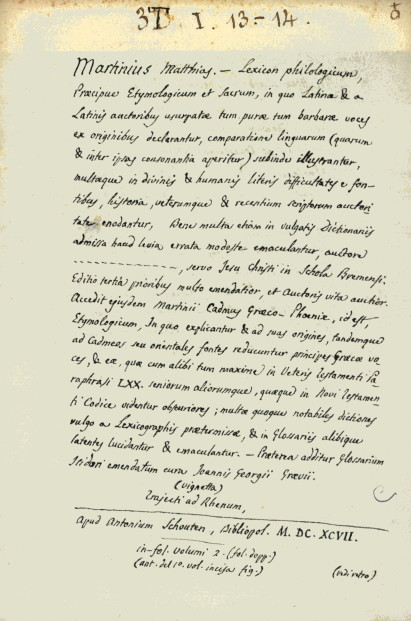 3T. I. 13-14.
Martinius Matthias. – Lexicon philologicum,
Præcipue Etymologicum et Sacrum, in quo Latinæ & a
Latinis auctoribus usurpatæ tum puræ tum barbaræ voces
ex originibus declarantur, comparatione linguarum (quarum
& inter ipsas consonantia aperitur) subinde illustrantur,
multæque in divinis & humanis literis difficultates e fon-
tibus, historia, veterumque & recentium scriptorum auctori
tate enodantur, Bene multa etiam in vulgatis Dictionariis
admissa haud levia errata modeste emaculantur, auctore
---------------, servo Jesu Christi in Schola Bremensi.
Editio tertia prioribus multo emendatior, et Auctoris vita auctior.
Accedit ejusdem Martinii Cadmus Græco-Phœnix, id est,
Etymologicum, In quo explicantur & ad suas origines, tandemque
ad Cadmeos seu orientales fontes reducuntur principes Græcæ vo-
ces, & eæ, quæ cum alibi tum maxime in Veteris Testamenti Pa-
raphrasi LXX. seniorum aliorumque, quæque in Novi Testamen-
ti Codice videntur obscuriores; multæ quoque notabiles dictiones
vulgo a Lexicographis prætermissæ, & in Glossariis alibique
latentes lucidantur & emaculantur. – Præterea additur Glossarium
Isidori emendatum cura Joannis Georgii Grævii.
(vignetta)
Trajecti ad Rhenum,
Apud Antonium Schouten, Bibliopol. M. DC. XCVII.
in-fol. volumi 2. (fol. dopp.)
(ant. del 1º. vol. incisa fig.) (vedi retro)